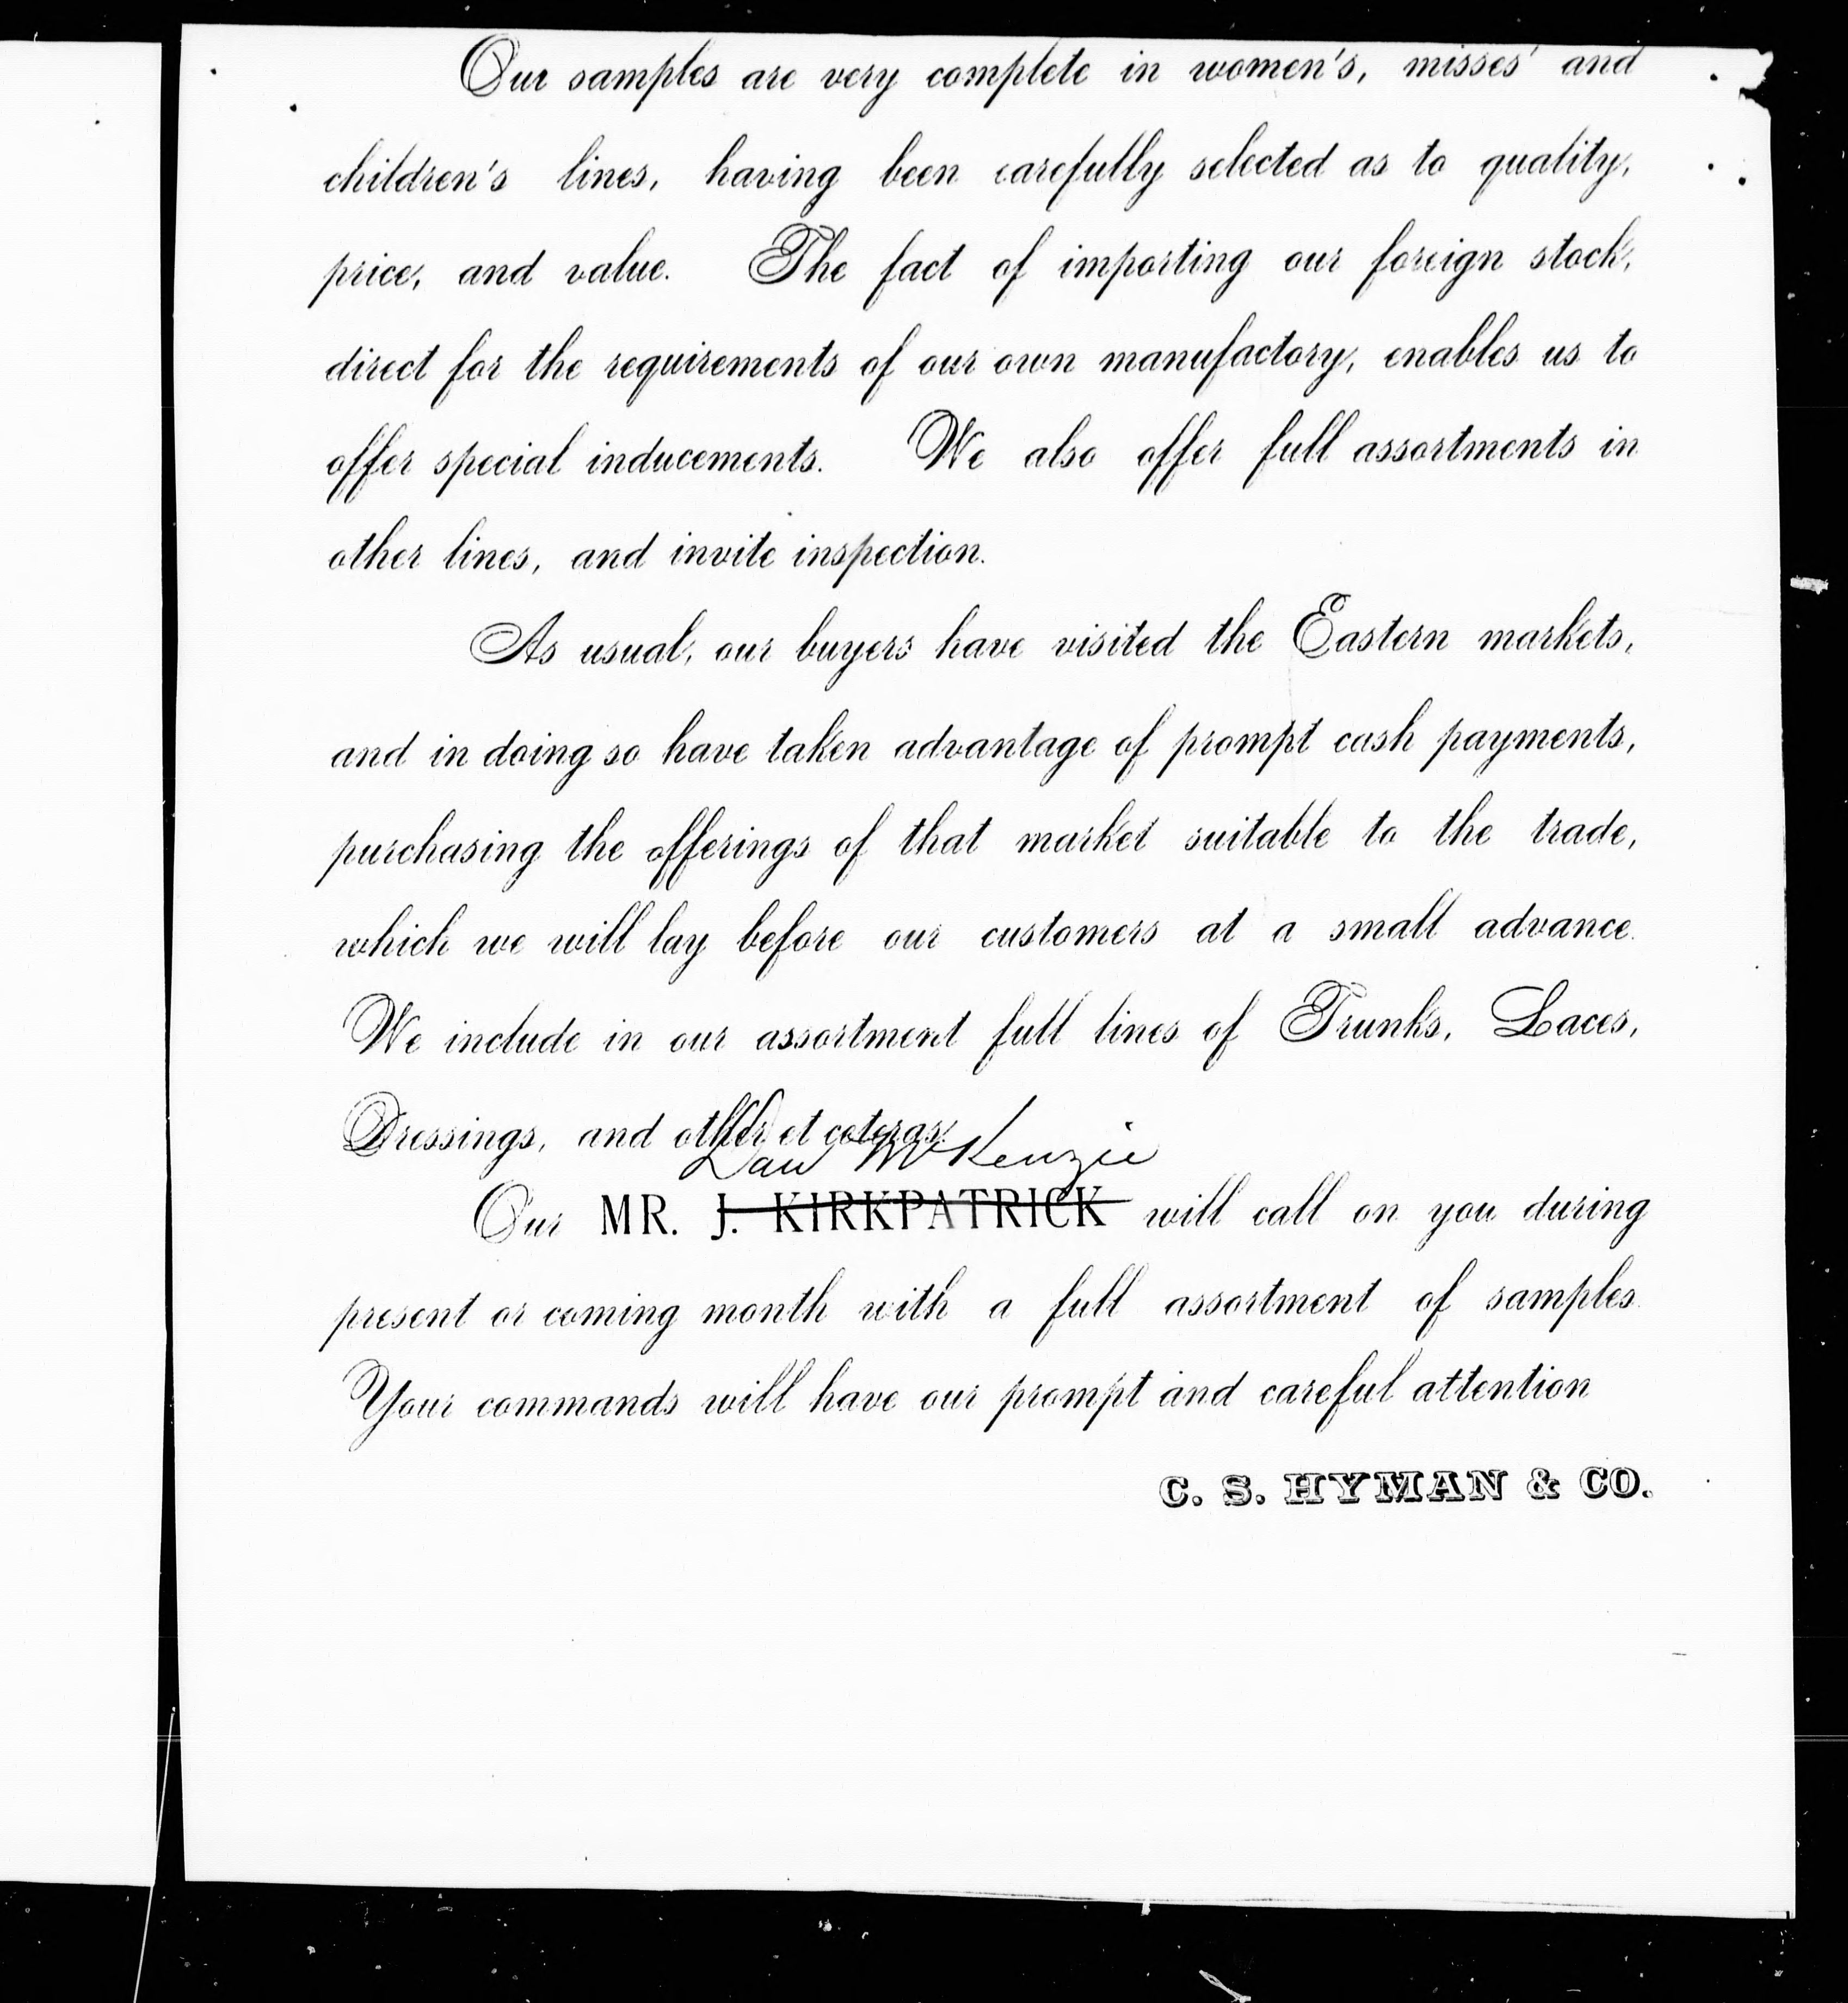 Our samples are very complete in women's, misses' and
children's lines, having been carefully selected as to quality,
price, and value. The fact of importing our foreign stock,
direct for the requirements of our own manufactory, enables us to
offer special inducements. We also offer full assortments in
other lines, and invite inspection.
As usual, our buyers have visited the Eastern markets,
and in doing so have taken advantage of prompt cash payments,
purchasing the offerings of that market suitable to the trade,
which we will lay before our customers at a small advance.
We include in our assortment full lines of Trunks, Laces,
Dressings, and other et ceteras.
McKenzie
Our MR. J. KIRKPATRICK will call on you during
present or coming month with a full assortment of samples.
Your commands will have our prompt and careful attention
C. S. HYMAN & CO.